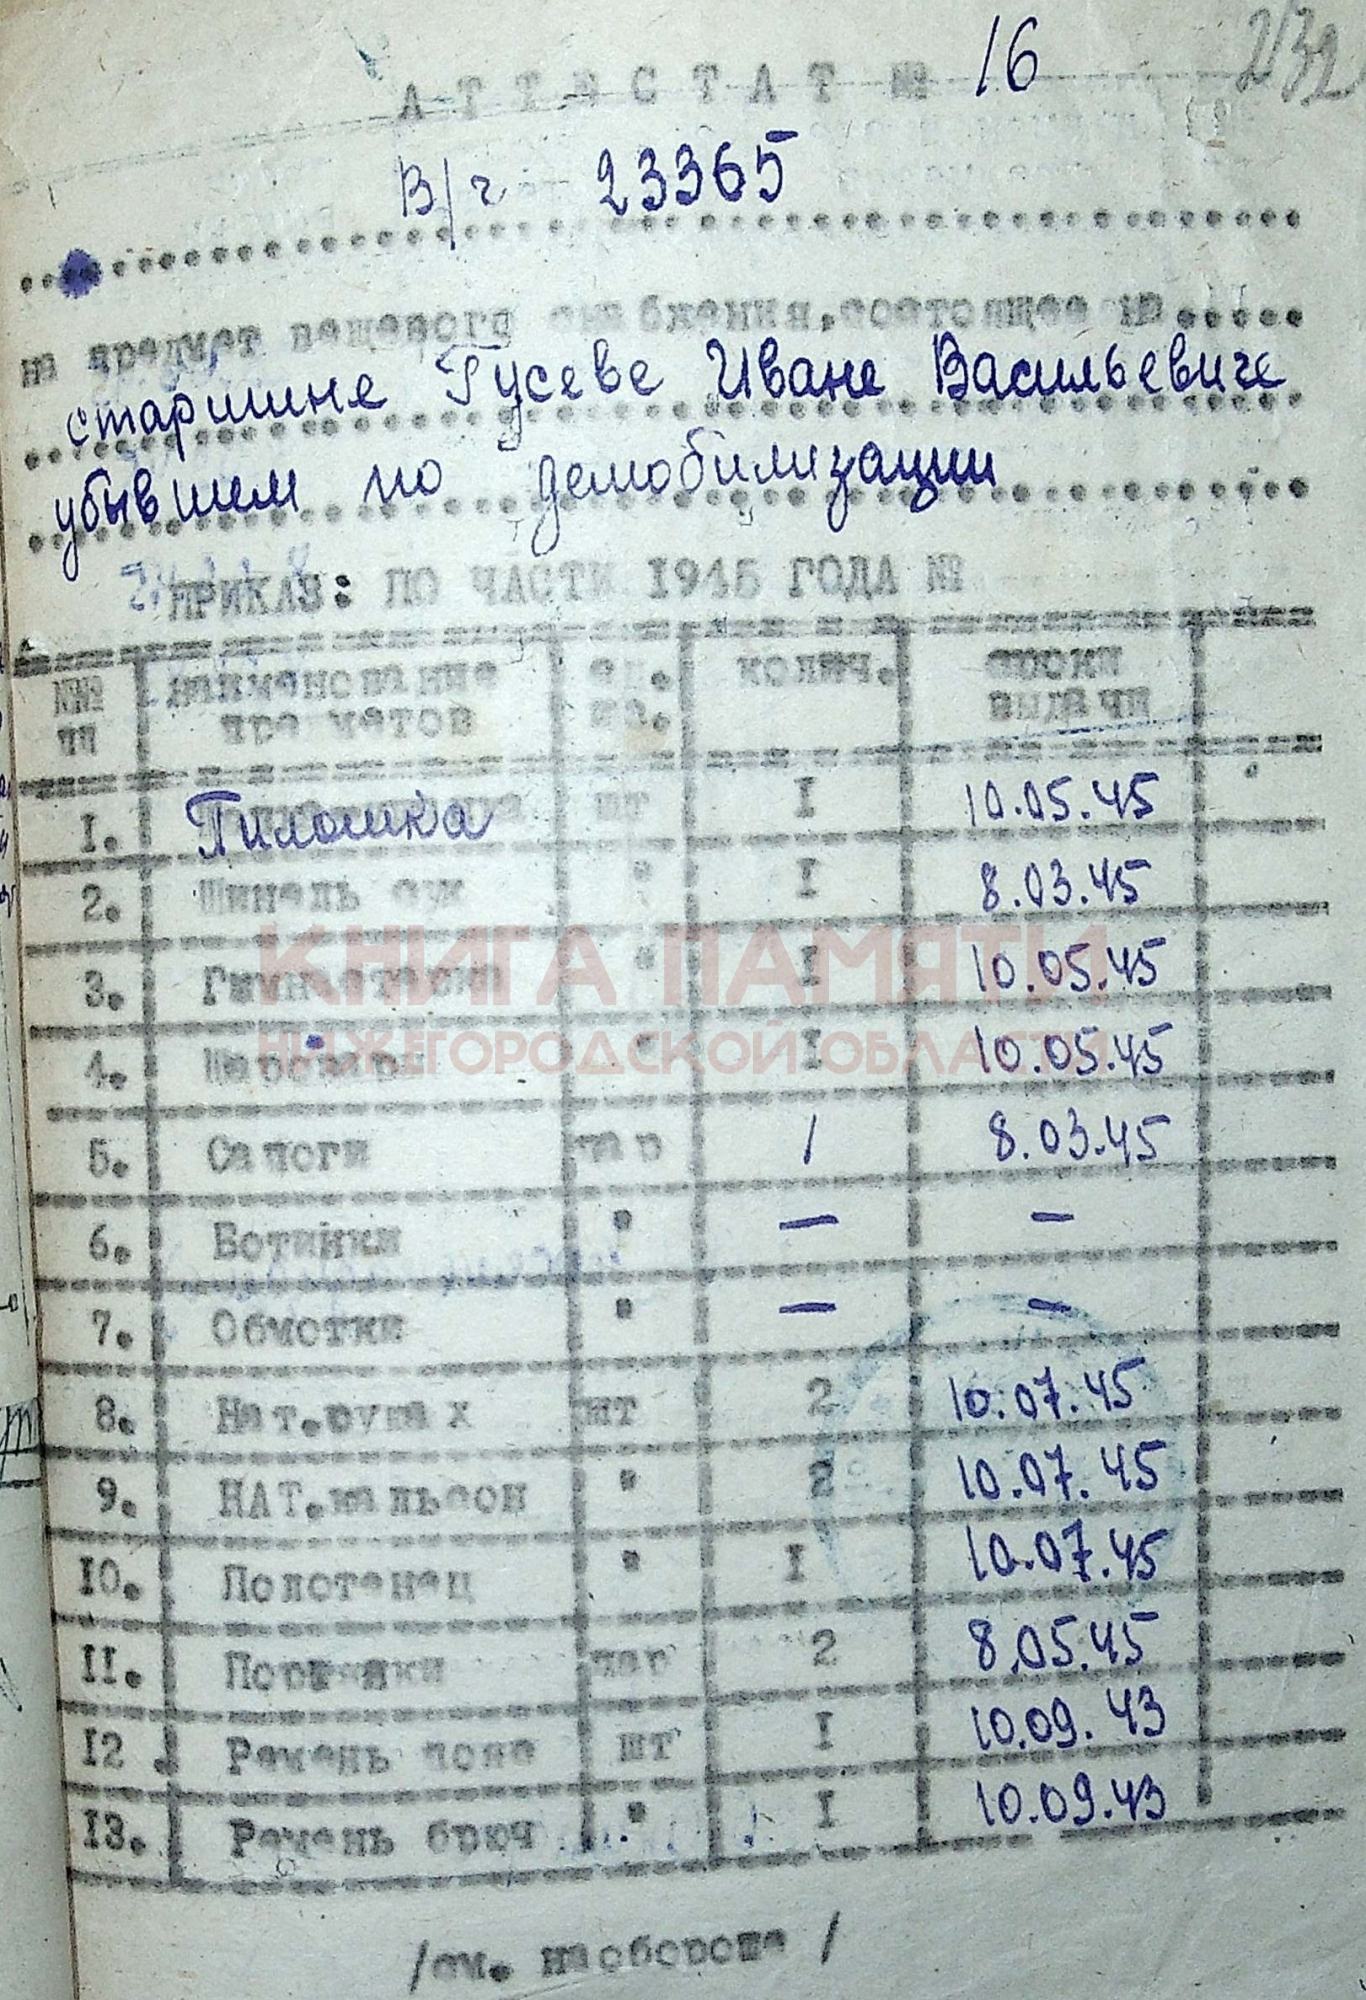 АТТЕСТАТ № 16
232
В/ч 23365
на предмет вещевого снабжения, состоящее на.....
старшине Гусеве Иване Васильевиче
убывшем по демобилизации
ПРИКАЗ: ПО ЧАСТИ 1945 ГОДА №
№№ пп наименование предметов ед. из. колич. сроки выдачи
I. Пилотка шт I 10.05.45
2. Шинель сук " I 8.03.45
3. Гимнастерка " I 10.05.45
4. Шаровары " I 10.05.45
5. Сапоги пар 1 8.03.45
6. Ботинки " — —
7. Обмотки " — —
8. Нат.рубах шт 2 10.07.45
9. НАТ.кальсон " 2 10.07.45
I0. Полотенец " I 10.07.45
II. Портянки пар 2 8.05.45
I2. Ремень пояс шт I 10.09.43
I3. Ремень брюч " I 10.09.43
/см. наобороте /
КНИГА ПАМЯТИ
НИЖЕГОРОДСКОЙ ОБЛАСТИ